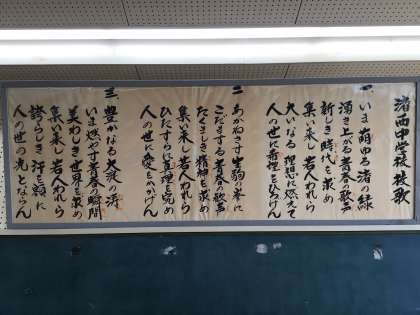 渚西中学校 校歌
一、いま萌ゆる渚の緑
湧き上がる青春の歌声
新しき時代を求め
集い来し若人われら
大いなる理想に燃えて
人の世に希望をひろげん
二 あかねさす生駒の峯に
こだまする青春の歌声
たくましき精神を求め
集い来し若人われら
ひたすらに真理を究め
人の世に愛をかかげん
三、豊かなる大淀の涛
いま燃やす青春の瞬間
美わしき世界を求め
集い来し若人われら
誇らしき汗を額に
人の世の光とならん